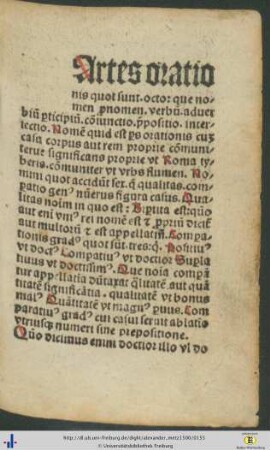 Artes oratio
nis quot sunt. octo: que no-
men ꝓnomen. verbũ. aduer
biũ ꝑticipiũ. cõiunctio. ꝓpositio. inter
iectio. Nomẽ quid est ꝑs orationis cuʒ
casu corpus aut rem proprie cõmuni
terue significans proprie vt Roma ty-
beris. cõmuniter vt vrbs flumen. No
mini quot accidũt sex. q̃ qualitas. com
ꝑatio genꝰ numerus figura casus. Qua
litas noĩm in quo est: Bipartita est: q̃ꝫ
aut eni vniꝰ rei nomẽ est & ꝓpriũ dicit̃
aut multorũ & est appellatiũ. Compa
rationis gradꝰ quot sũt. tres: q̃. Positiuꝰ
vt doctꝰ. Compatiuꝰ vt doctior Supla
tiuus vt doctissimꝰ. Que noĩa compã
tur appellatia dũtaxat q̃litatẽ aut quã
titatẽ significãtia. qualitatẽ vt bonus
malꝰ Quãtitatẽ vt magnꝰ ꝑuus. Com
paratiuꝰ gradꝰ cui casui seruit ablatiuo
vtriusqʒ numeri sine prepositione.
Quo dicimus enim doctior illo vl do
http://dl.ub.uni-freiburg.de/diglit/alexander_metz1500/0155
© Universitätsbibliothek Freiburg